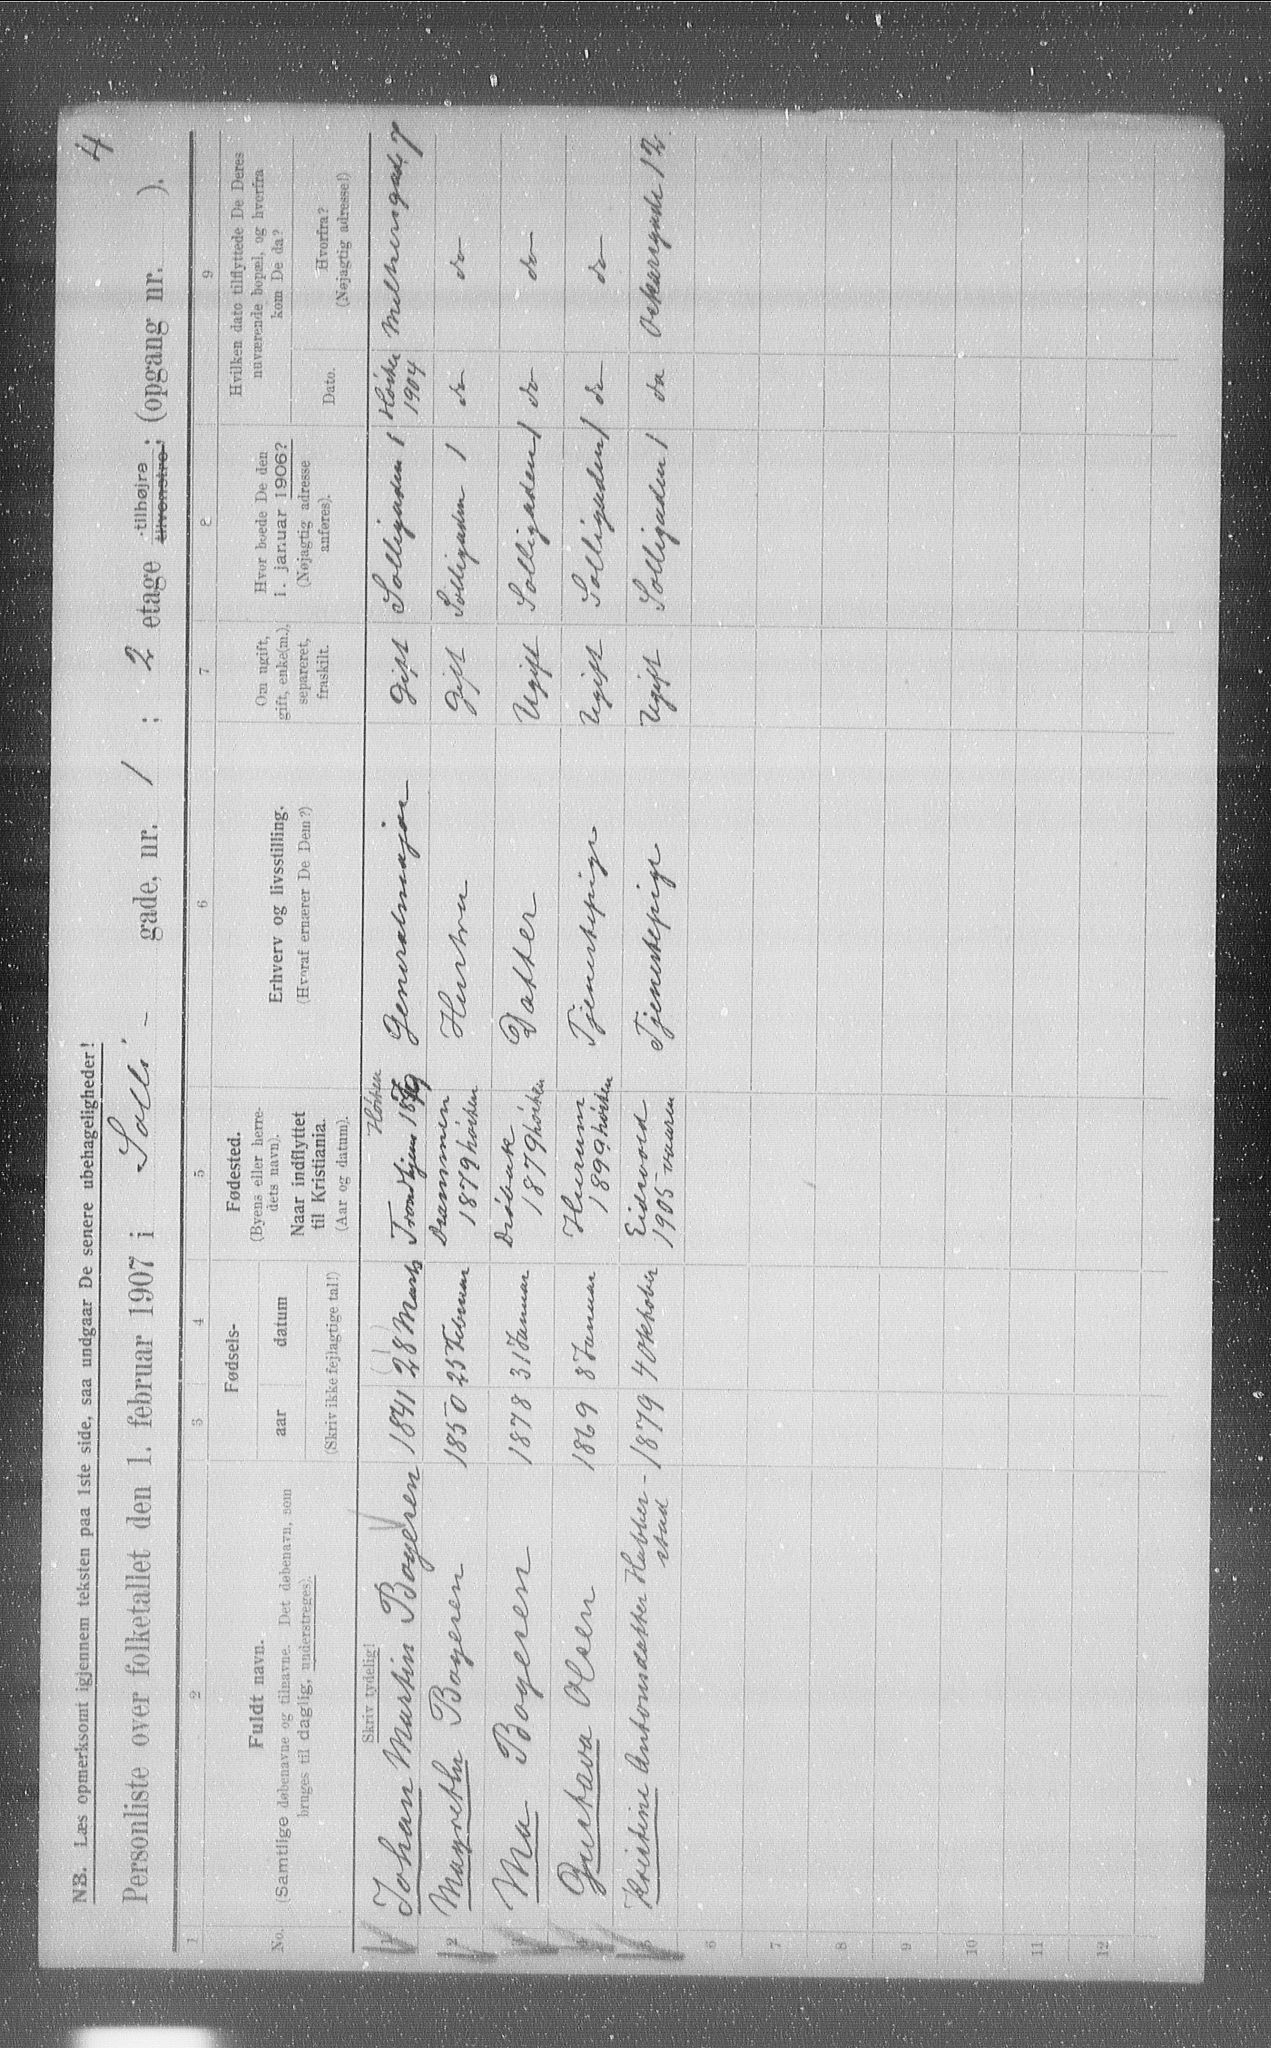 4
NB. Læs opmerksomt igjennem teksten paa 1ste side, saa undgaar De senere ubehageligheder!
Personliste over folketallet den 1. februar 1907 i Solli - gade, nr. 1 : 2 etage tilhøjre tilvenstre; (opgang nr. ).
1 2 3 4 5 6 7 8 9
No.
Fuldt navn.
(Samtlige døbenavne og tilnavne. Det døbenavn, som
bruges til daglig, understreges).
Fødsels-
aar datum
(Skriv ikke fejlagtige tal!)
Fødested.
(Byens eller herre-
dets navn).
Naar indflyttet
til Kristiania.
(Aar og datum).
Erhverv og livsstilling.
(Hvoraf ernærer De Dem?)
Om ugift,
gift, enke(m.),
separeret,
fraskilt.
Hvor boede De den
1. januar 1906?
(Nøjagtig adresse
anføres).
Hvilken dato tilflyttede De Deres
nuværende bopæl, og hvorfra
kom De da?
Dato.
Hvorfra?
(Nøjagtig adresse!)
Skriv tydelig!
Høsten Høsten
1 Johan Martin Boyesen 1841 28 Marts Trondhjem 1879 Generalmajor Gift Solligaden 1 1904 7
2 Magrethe Boyesen 1850 25 Februar Drammen 1879 høsten Hustru Gift Solligaden 1 do do
3 Boyesen 1878 31 Januar Drøbak 1879 høsten Datter Ugift Solligaden 1 do do
4 Gustava Olsen 1869 8 Januar Hurum 1899 høsten Tjenestepige Ugift Solligaden 1 do do
5 Kristine Antonsdatter -stad 1879 4 Oktober Eidsvold 1905 vaaren Tjenestepige Ugift Solligaden 1 do Oskarsgade 12
6
7
8
9
10
11
12